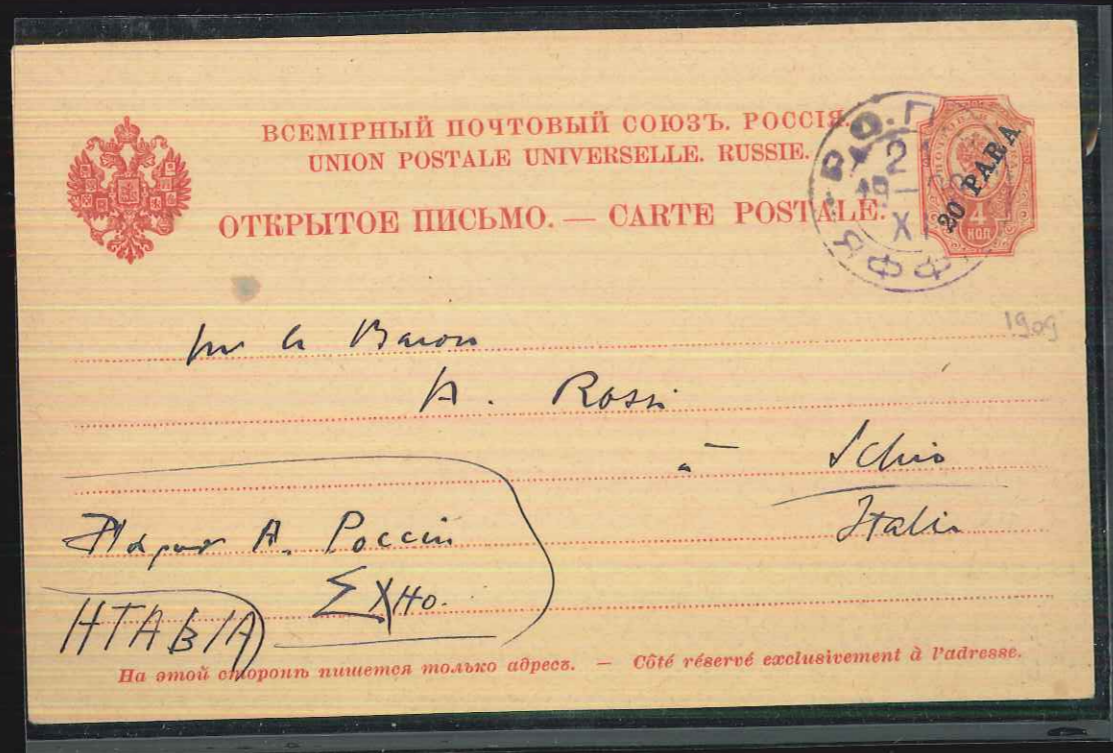 ВСЕМІРНЫЙ ПОЧТОВЫЙ СОЮЗЪ. РОССІЯ.
UNION POSTALE UNIVERSELLE. RUSSIE.
ОТКРЫТОЕ ПИСЬМО. — CARTE POSTALE.
Р.О.П
2
19
XI
ЯФФ
20 PARA
4
КОП
1909
Baron
A. Rossi
à Schio
Italie
А. Россіи
Схио.
ИТАВІА
На этой сторонѣ пишется только адресъ. — Côté réservé exclusivement à l'adresse.